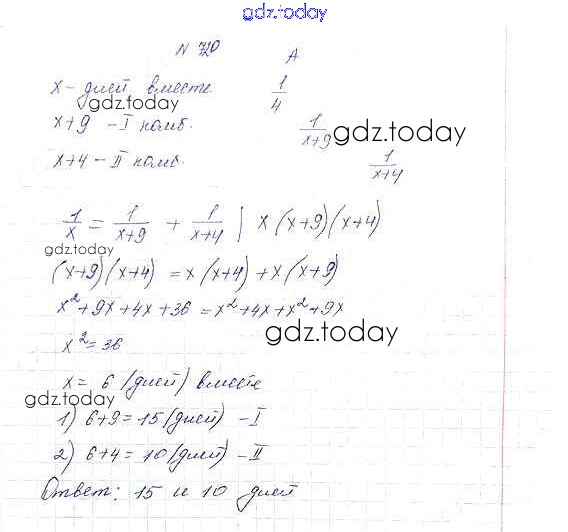 gdz.today
N 720 A
x - дней вместе 1/4
gdz.today
x+9 - I комб. 1/(x+9) gdz.today
x+4 - II комб. 1/(x+4)
1/x = 1/(x+9) + 1/(x+4) | x (x+9)(x+4)
gdz.today
(x+9)(x+4) = x(x+4) + x(x+9)
x²+9x+4x+36 = x²+4x+x²+9x
gdz.today
x²=36
x= 6 (дней) вместе
gdz.today
1) 6+9=15(дней) - I
2) 6+4=10(дней) - II
Ответ: 15 и 10 дней